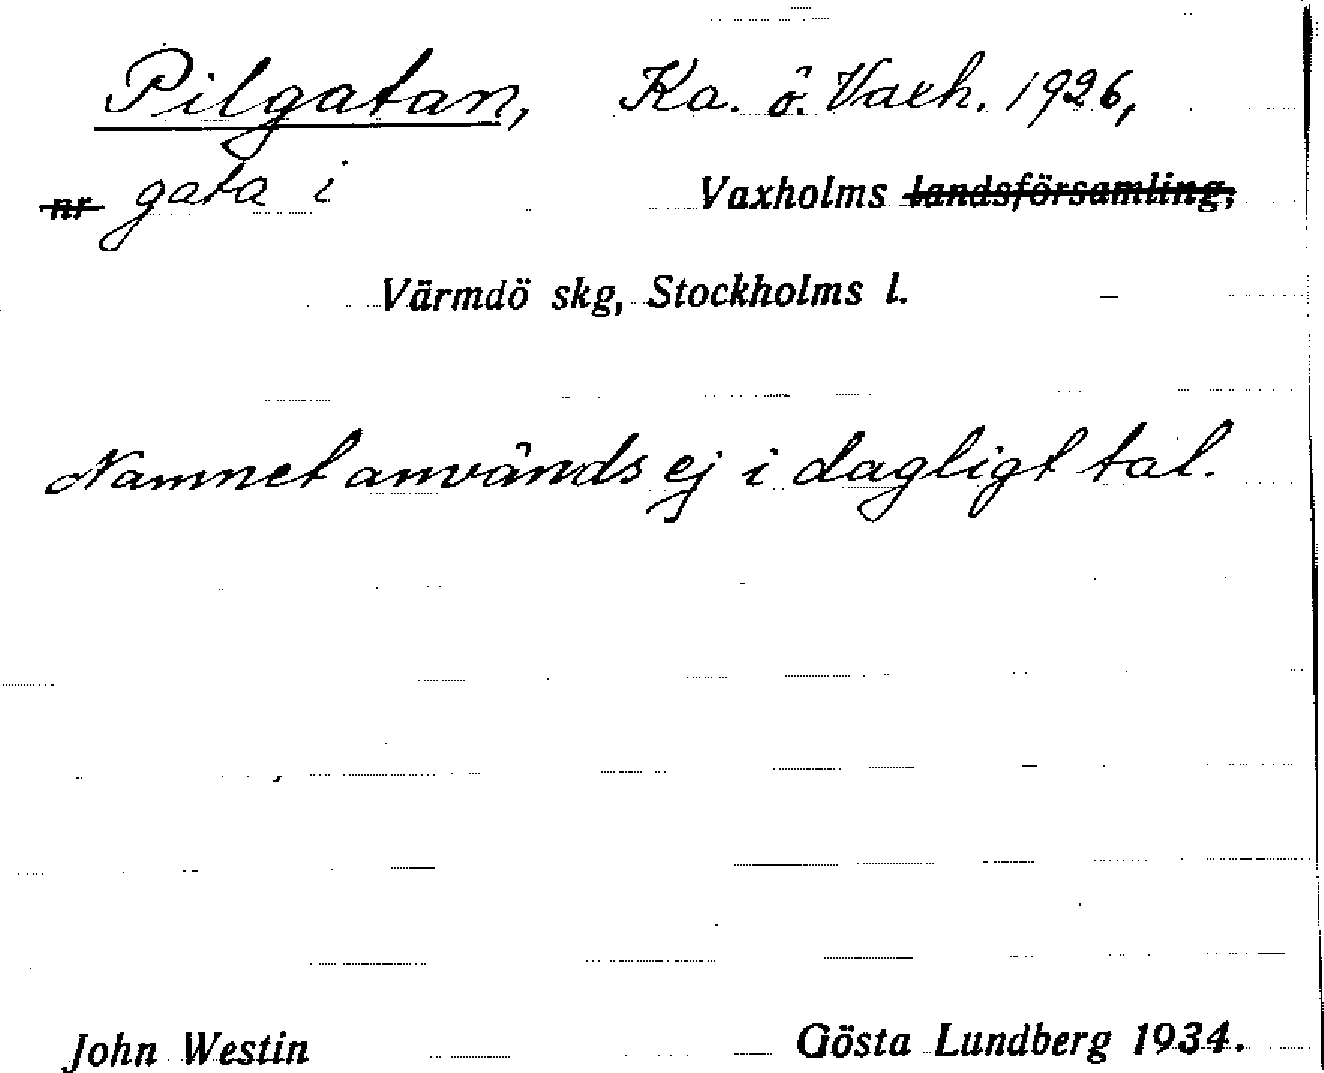 Pilgatan, Ka. ö. Vaxh. 1926,
nr gata i Vaxholms landsförsamling,
Värmdö skg, Stockholms l.
Namnet används ej i dagligt tal.
John Westin Gösta Lundberg 1934.